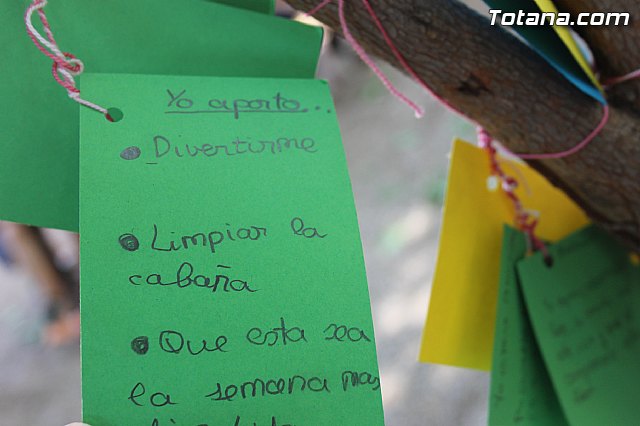 Totana.com
Yo aporto...
• Divertirme
• Limpiar la
cabaña
• Que esta sea
la semana mas